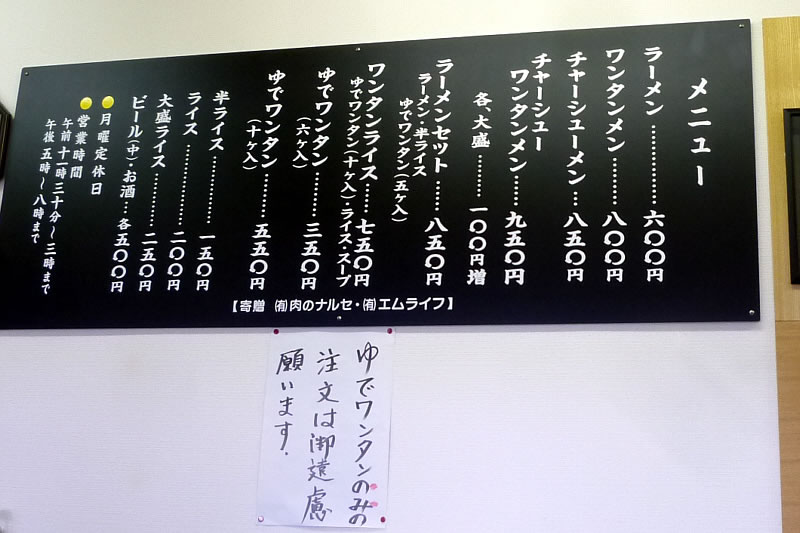 メニュー
ラーメン ………… 六〇〇円
ワンタンメン …… 八〇〇円
チャーシューメン … 八五〇円
チャーシュー
ワンタンメン …… 九五〇円
各、大盛 …… 一〇〇円増
ラーメンセット …… 八五〇円
ラーメン・半ライス
ゆでワンタン(五ヶ入)
ワンタンライス …… 七五〇円
ゆでワンタン(十ヶ入)・ライス・スープ
ゆでワンタン ……… 三五〇円
(六ヶ入)
ゆでワンタン ……… 五五〇円
(十ヶ入)
半ライス ………… 一五〇円
ライス ………… 二〇〇円
大盛ライス ……… 二五〇円
ビール(中)・お酒 … 各五〇〇円
●月曜定休日
●営業時間
午前十一時三十分~三時まで
午後五時~八時まで
【寄贈 ㈲肉のナルセ・㈲エムライフ】
ゆでワンタンのみの
注文は御遠慮
願います.